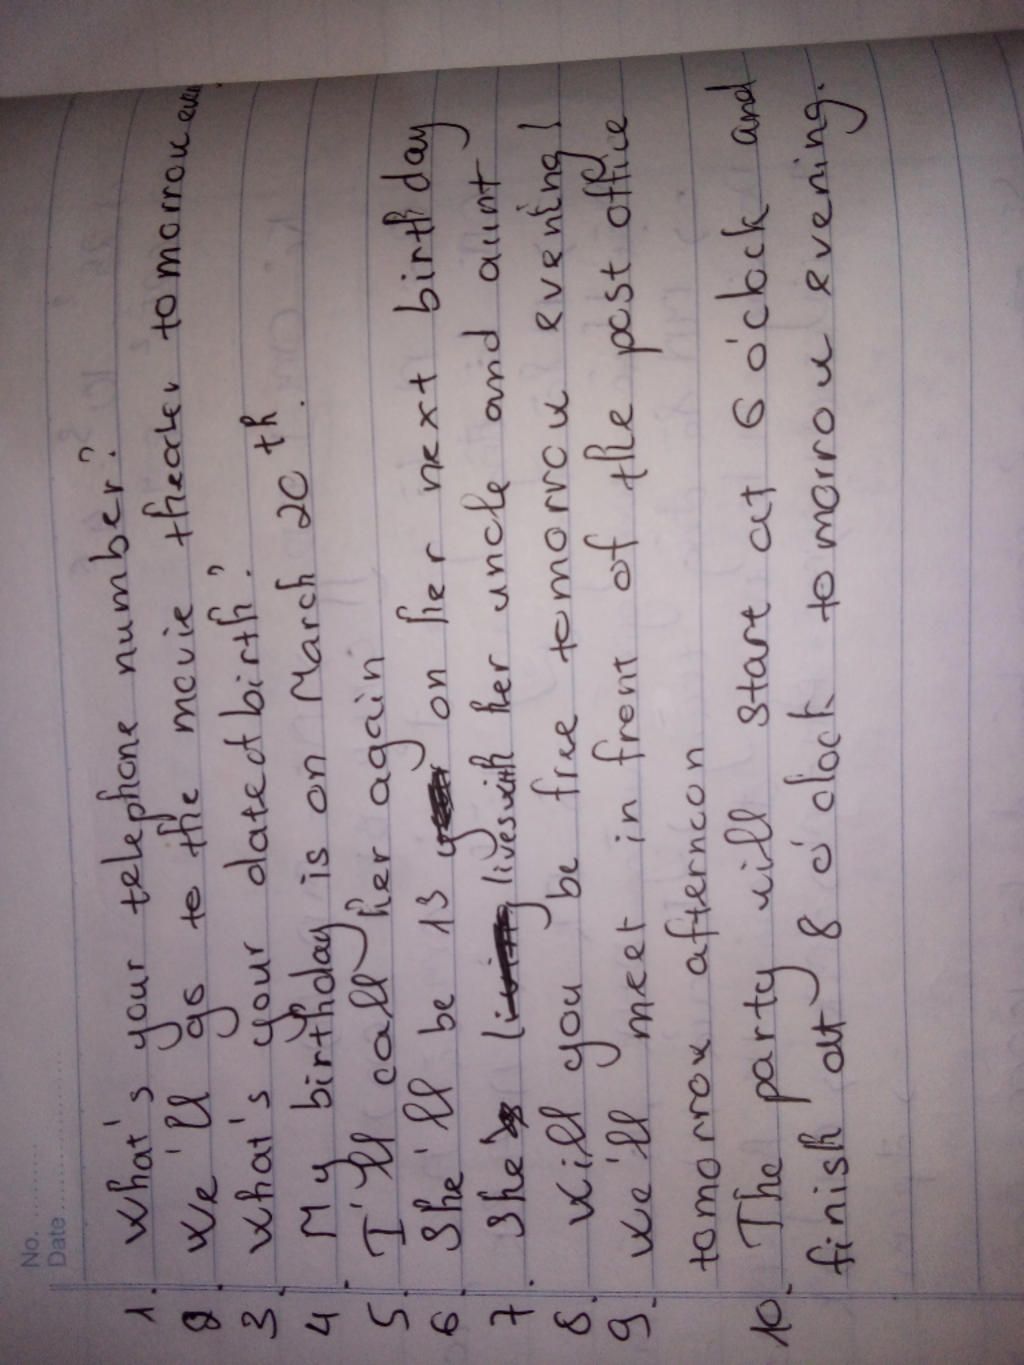 No. ............
Date ............
1. What's your telephone number?
2. We'll go to the movie theater tomorrow
3. What's your date of birth?
4. My birthday is on March 20th.
5. I'll call her again
6. She'll be 13 on her next birthday
7. She lives with her uncle and aunt
8. Will you be free tomorrow evening!
9. We'll meet in front of the post office
tomorrow afternoon
10. The party will start at 6 o'clock and
finish at 8 o'clock tomorrow evening.